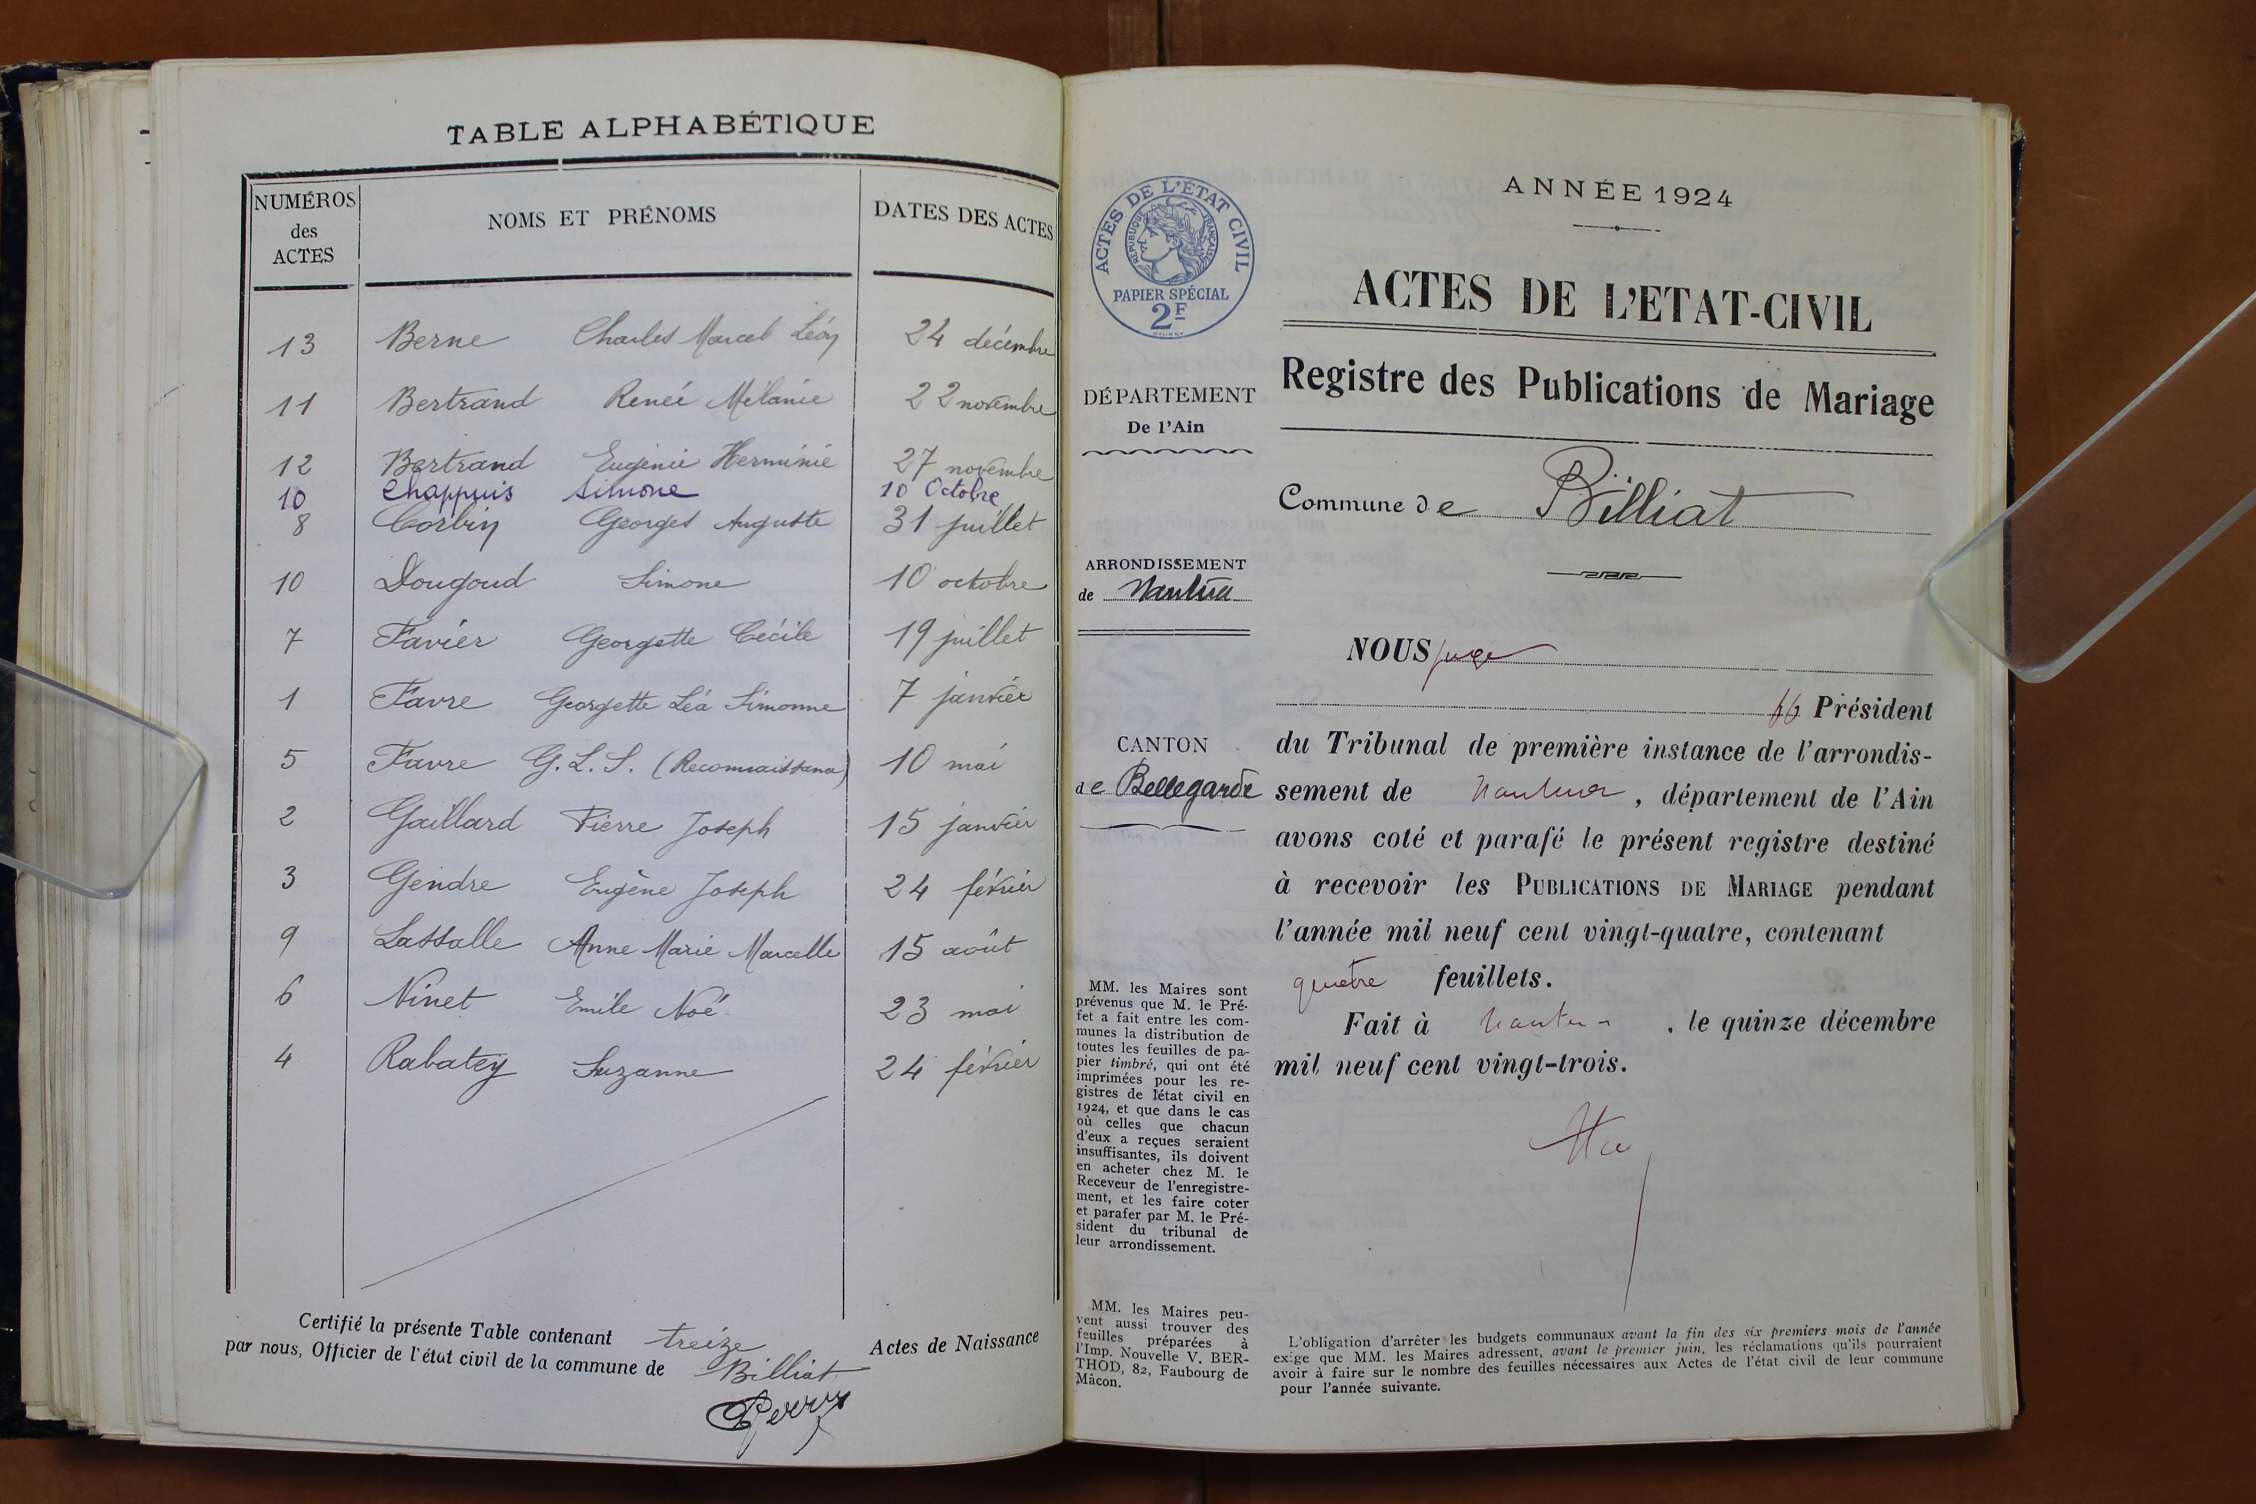 TABLE ALPHABÉTIQUE
NUMÉROS des ACTES NOMS ET PRÉNOMS DATES DES ACTES
13 Berne Charles Marcel Léon 24 décembre
11 Bertrand Renée Mélanie 22 novembre
12 Bertrand Eugénie Herminie 27 novembre
10 Chappuis Simone 10 Octobre
8 Corbin Georges Auguste 31 juillet
10 Dougoud Simone 10 octobre
7 Favier Georgette Cécile 19 juillet
1 Favre Georgette Léa Simonne 7 janvier
5 Favre G. L. S. (Reconnaissance) 10 mai
2 Gaillard Pierre Joseph 15 janvier
3 Gendre Eugène Joseph 24 février
9 Lassalle Anne Marie Marcelle 15 août
6 Ninet Emile Noé 23 mai
4 Rabatey Suzanne 24 février
Certifié la présente Table contenant treize Actes de Naissance
par nous, Officier de l'état civil de la commune de Billiat
ACTES DE L'ÉTAT CIVIL
RÉPUBLIQUE FRANÇAISE
PAPIER SPÉCIAL
2F
DÉPARTEMENT
De l'Ain
ARRONDISSEMENT
de Nantua
CANTON
de Bellegarde
MM. les Maires sont
prévenus que M. le Pré-
fet a fait entre les com-
munes la distribution de
toutes les feuilles de pa-
pier timbré, qui ont été
imprimées pour les re-
gistres de l'état civil en
1924, et que dans le cas
où celles que chacun
d'eux a reçues seraient
insuffisantes, ils doivent
en acheter chez M. le
Receveur de l'enregistre-
ment, et les faire coter
et parafer par M. le Pré-
sident du tribunal de
leur arrondissement.
MM. les Maires peu-
vent aussi trouver des
feuilles préparées à
l'Imp. Nouvelle V. BER-
THOD, 82, Faubourg de
Mâcon.
ANNÉE 1924
ACTES DE L'ETAT-CIVIL
Registre des Publications de Mariage
Commune de Billiat
NOUS juge
Président
du Tribunal de première instance de l'arrondis-
sement de Nantua, département de l'Ain
avons coté et parafé le présent registre destiné
à recevoir les PUBLICATIONS DE MARIAGE pendant
l'année mil neuf cent vingt-quatre, contenant
quatre feuillets.
Fait à Nantua, le quinze décembre
mil neuf cent vingt-trois.
L'obligation d'arrêter les budgets communaux avant la fin des six premiers mois de l'année
exige que MM. les Maires adressent, avant le premier juin, les réclamations qu'ils pourraient
avoir à faire sur le nombre des feuilles nécessaires aux Actes de l'état civil de leur commune
pour l'année suivante.